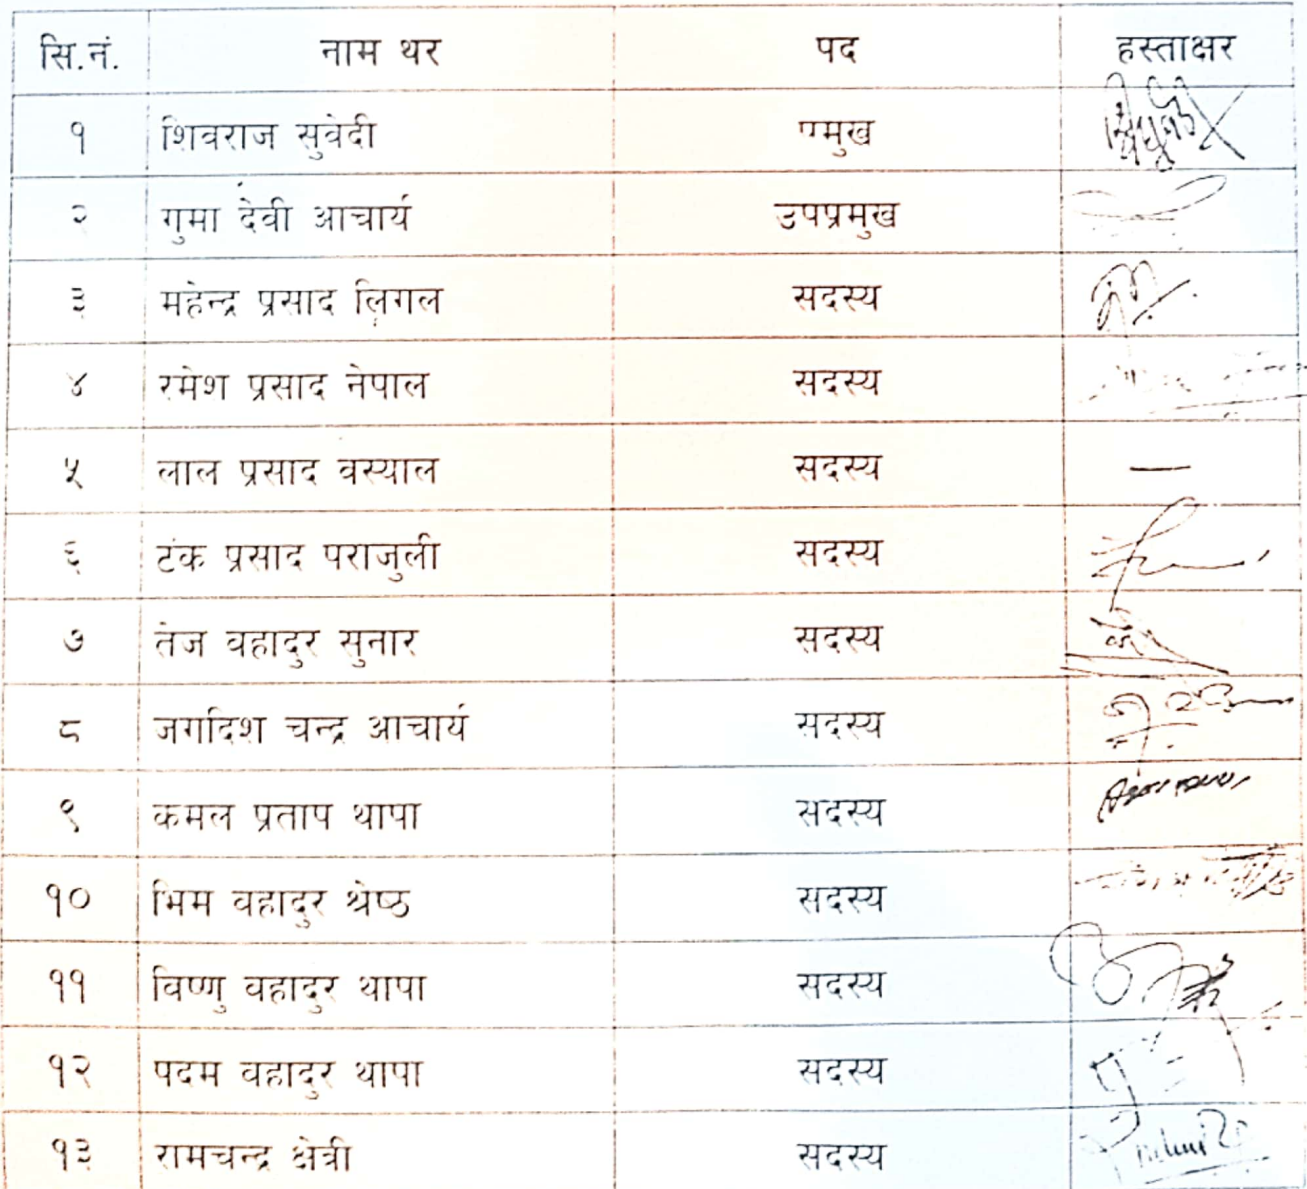 सि.नं. नाम थर पद हस्ताक्षर
१ शिवराज सुवेदी प्रमुख
२ गुमा देवी आचार्य उपप्रमुख
३ महेन्द्र प्रसाद लिगल सदस्य
४ रमेश प्रसाद नेपाल सदस्य
५ लाल प्रसाद वस्याल सदस्य —
६ टंक प्रसाद पराजुली सदस्य
७ तेज वहादुर सुनार सदस्य
८ जगदिश चन्द्र आचार्य सदस्य
९ कमल प्रताप थापा सदस्य
१० भिम वहादुर श्रेष्ठ सदस्य
११ विष्णु वहादुर थापा सदस्य
१२ पदम वहादुर थापा सदस्य
१३ रामचन्द्र क्षेत्री सदस्य